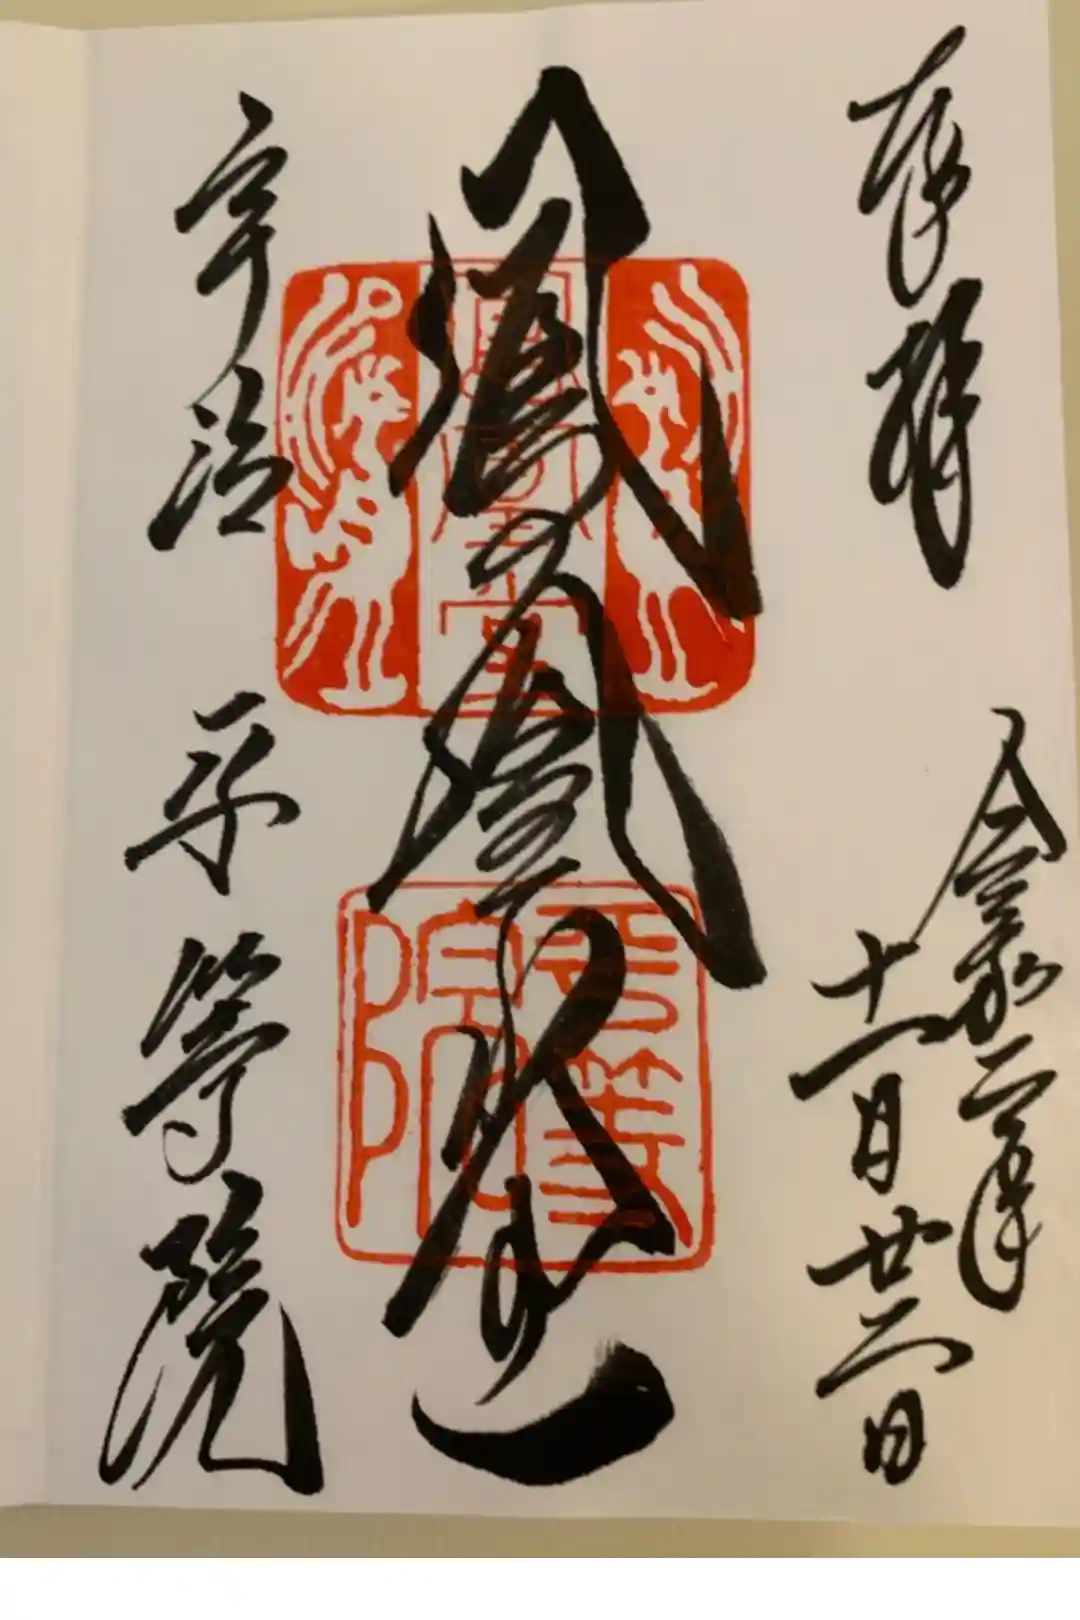 奉拝
令和二年
十一月廿二日
鳳凰堂
鳳凰堂
平等院
宇治 平等院